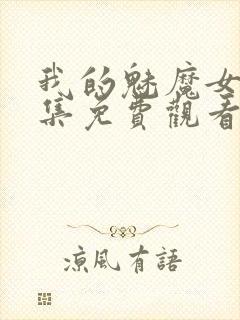 我的魅魔女
集免費觀看
涼風有語